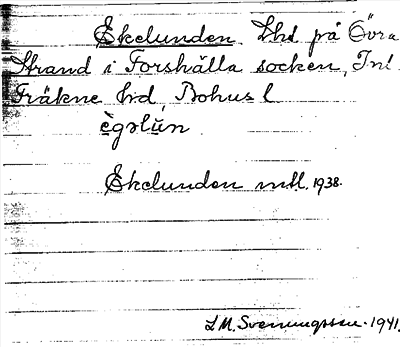 Ekelunden. Lht på Övra
Strand i Forshälla socken, Inl.
Fräkne hd, Bohus l.
ègəlùn.
Ekelunden mtl. 1938.
S.M. Svenungsson. 1941.